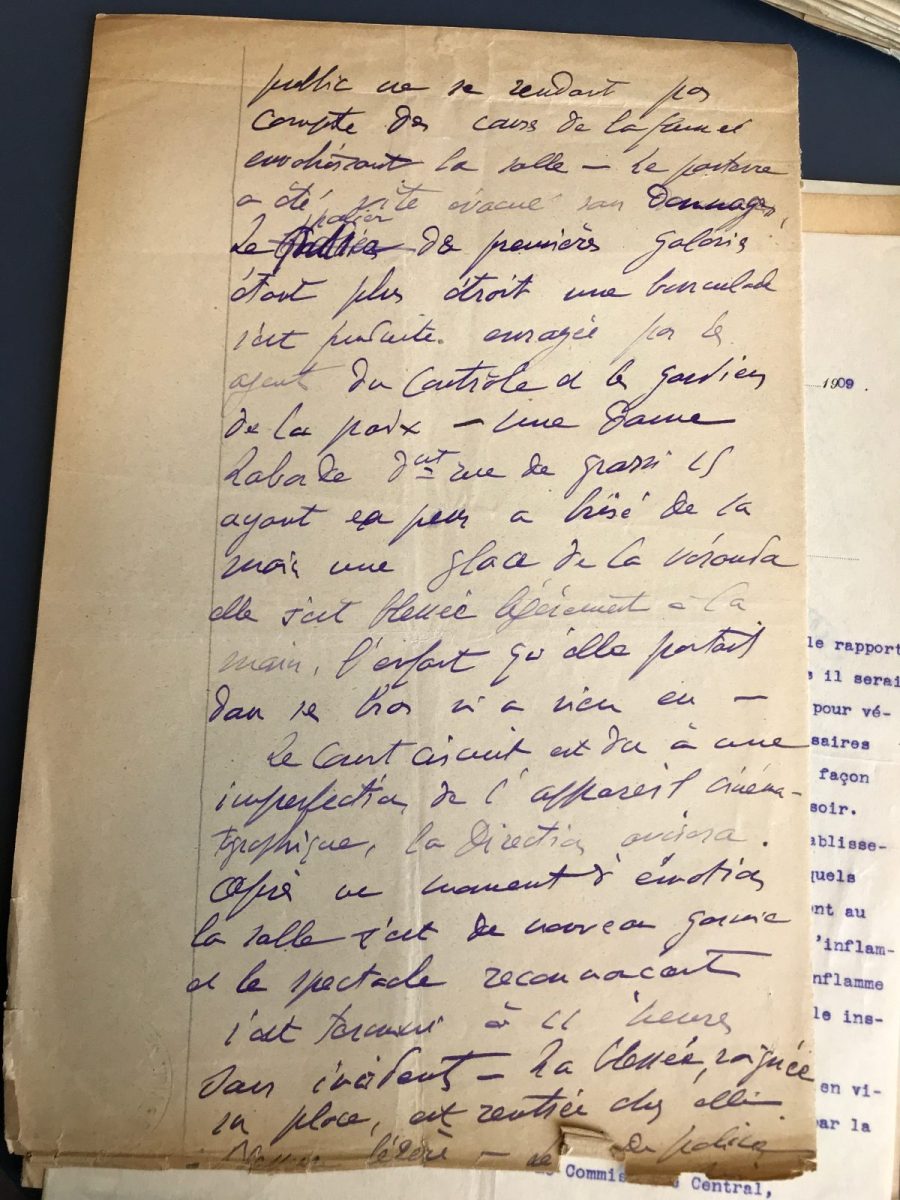 public ne se rendant pas
compte des cause de la fumée
envahissant la salle — Le parterre
a été vite évacué sans dommages,
palier
Le de premières galeries
étant plus étroit une bousculade
s'est produite. enrayée par les
agents du Contrôle et les gardiens
de la paix — Une Dame
Laborde dut rue de grassi 15
ayant eu peur a brisé de la
main une glace de la véranda
elle s'est blessée légèrement à la
main, l'enfant qu'elle portait
dans ses bras n'a rien eu —
Le Court circuit est du à une
imperfection de l'appareil cinéma-
tographique, la Direction avisera.
Après un moment d'émotion
la salle s'est de nouveau garnie
et le spectacle recommençant
s'est terminé à 11 heures
sans incidents — La blessée, soignée
sur place, est rentrée chez elle.
légère — de police
1909
le rapport
il serai
pour vé-
saires
façon
soir.
ablisse-
quels
nt au
'inflam-
nflamme
le ins-
en vi-
ar la
Commiss Central,